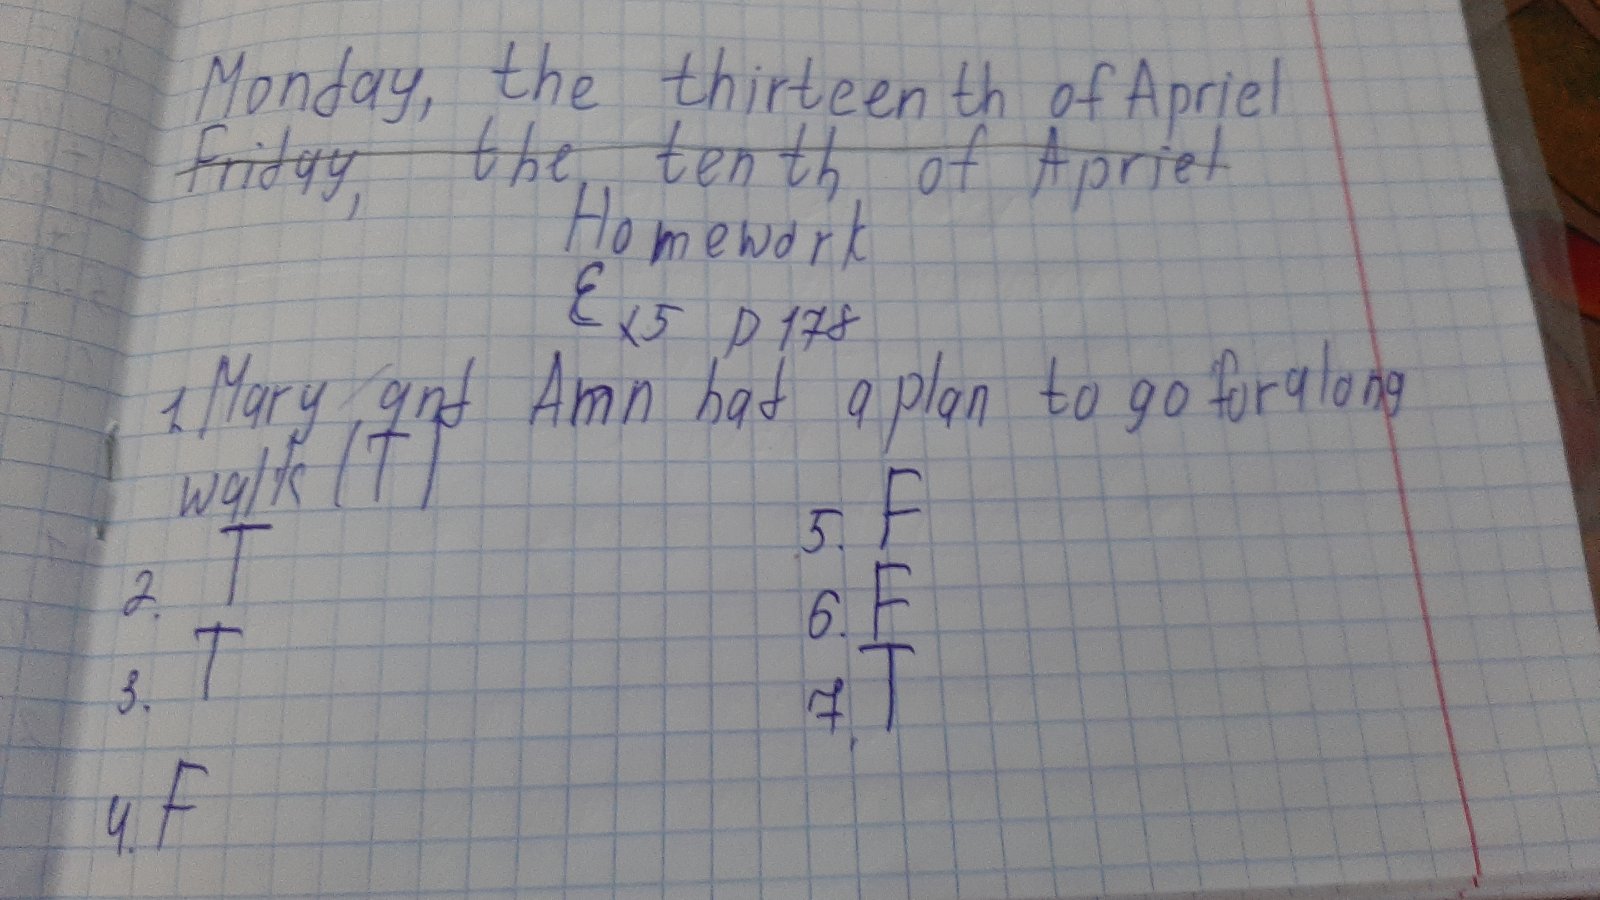 Monday, the thirteenth of Apriel
Friday, the tenth of Apriel
Homework
Ex5 p178
1. Mary and Amn had a plan to go for a long
walk (T)
2. T
3. T
4. F
5. F
6. F
7. T